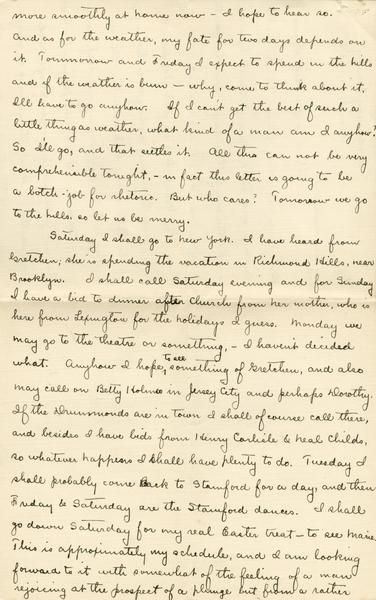 more smoothly at home now - I hope to hear so.
And as for the weather, my fate for two days depends on
it. Tommorrow and Friday I expect to spend in the hills
and if the weather is bum - why, come to think about it,
I'll have to go anyhow. If I can't get the best of such a
little thing as weather, what kind of a man am I anyhow?
So I'll go, and that settles it. All this can not be very
comprehensible tonight, - in fact this letter is going to be
a botch-job for rhetoric. But who cares? Tomorrow we go
to the hills. so let us be merry.
Saturday I shall go to New York. I have heard from
Gretchen; she is spending the vacation in Richmond Hills, near
Brooklyn. I shall call Saturday evening and for Sunday
I have a bid to dinner after Church from her mother, who is
here from Lexington for the holidays I guess. Monday we
may go to the theatre or something, - I haven't decided
what. Anyhow I hope to see something of Gretchen, and also
may call on Betty Holmes in Jersey City and perhaps Dorothy.
If the Drummonds are in town I shall of course call there,
and besides I have bids from Henry Carlisle & Neal Childs,
so whatever happens I shall have plenty to do. Tuesday I
shall probably come back to Stamford for a day, and then
Friday & Saturday are the Stamford dances. I shall
go down Saturday for my real Easter treat - to see Marie.
This is approximately my schedule, and I am looking
forward to it with somewhat of the feeling of a man
rejoicing at the prospect of a plunge but from a rather